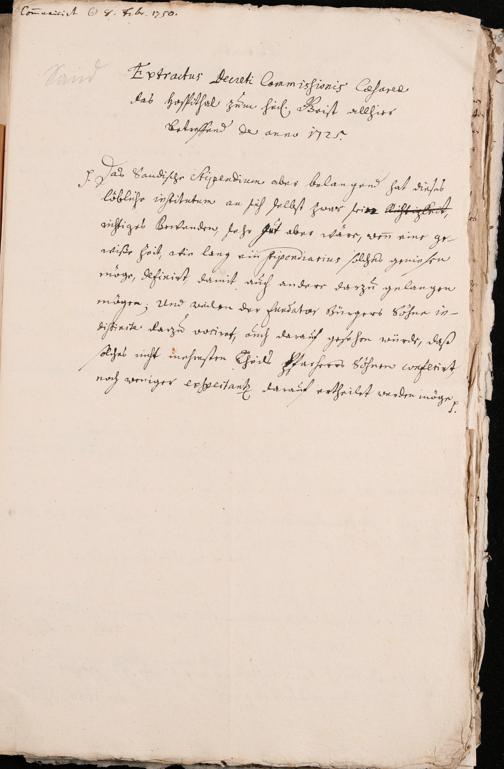 Communicirt 8. Febr. 1750.
Sand
Extractus Decreti Commissionis Cæsareæ
das Hospithal zum heil. Geist allhier
betreffend de anno 1725.
Das Sandische Stipendium aber belangend hat dieses
löbliche institutum an sich selbst zwar sein Richtigkeit,
richtiges Bewenden, sehr gut aber wäre, wenn eine ge-
wiße Zeit, wie lang ein stipendiarius solches geniesen
möge, definirt, damit auch andere darzu gelangen
mögen; Und weilen der fundator Burgers Söhne in-
distincte darzu vociret, auch darauf gesehen würde, daß
solches nicht mehresten Theils Pfarherrs Söhnen conferirt
noch weniger expectantz darauf ertheilet werden möge